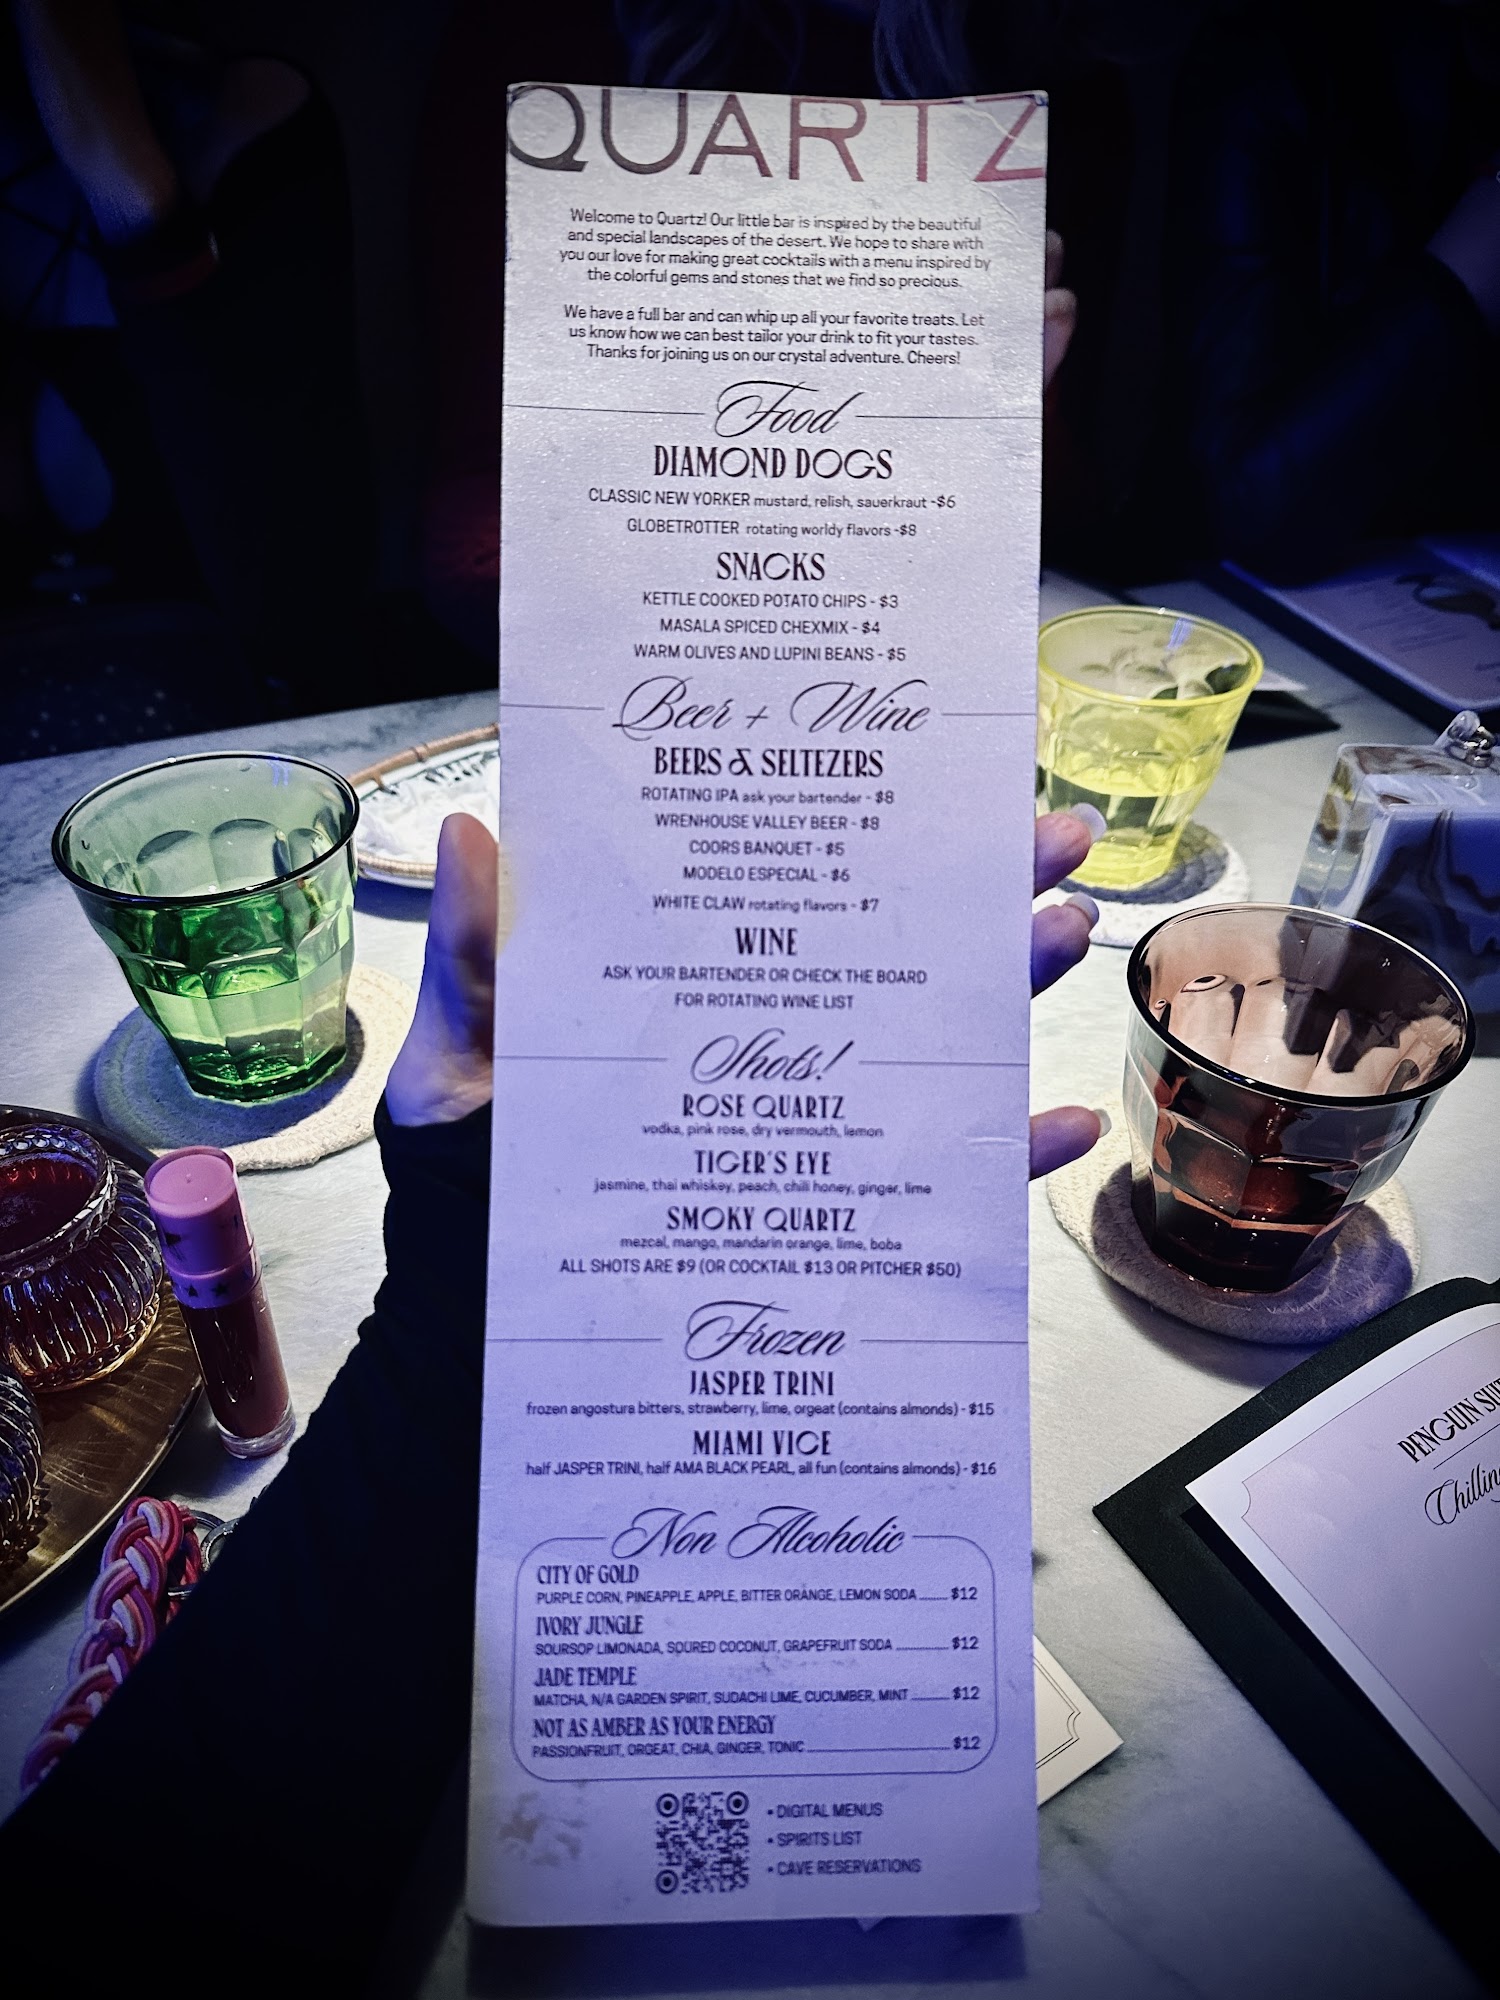 QUARTZ
Welcome to Quartz! Our little bar is inspired by the beautiful
and special landscapes of the desert. We hope to share with
you our love for making great cocktails with a menu inspired by
the colorful gems and stones that we find so precious.
We have a full bar and can whip up all your favorite treats. Let
us know how we can best tailor your drink to fit your tastes.
Thanks for joining us on our crystal adventure. Cheers!
Food
DIAMOND DOGS
CLASSIC NEW YORKER mustard, relish, sauerkraut -$6
GLOBETROTTER rotating worldy flavors -$8
SNACKS
KETTLE COOKED POTATO CHIPS - $3
MASALA SPICED CHEXMIX - $4
WARM OLIVES AND LUPINI BEANS - $5
Beer + Wine
BEERS & SELTEZERS
ROTATING IPA ask your bartender - $8
WRENHOUSE VALLEY BEER - $8
COORS BANQUET - $5
MODELO ESPECIAL - $6
WHITE CLAW rotating flavors - $7
WINE
ASK YOUR BARTENDER OR CHECK THE BOARD
FOR ROTATING WINE LIST
Shots!
ROSE QUARTZ
vodka, pink rose, dry vermouth, lemon
TIGER'S EYE
jasmine, thai whiskey, peach, chili honey, ginger, lime
SMOKY QUARTZ
mezcal, mango, mandarin orange, lime, boba
ALL SHOTS ARE $9 (OR COCKTAIL $13 OR PITCHER $50)
Frozen
JASPER TRINI
frozen angostura bitters, strawberry, lime, orgeat (contains almonds) - $15
MIAMI VICE
half JASPER TRINI, half AMA BLACK PEARL, all fun (contains almonds) - $16
Non Alcoholic
CITY OF GOLD
PURPLE CORN, PINEAPPLE, APPLE, BITTER ORANGE, LEMON SODA ........ $12
IVORY JUNGLE
SOURSOP LIMONADA, SOURED COCONUT, GRAPEFRUIT SODA ................ $12
JADE TEMPLE
MATCHA, N/A GARDEN SPIRIT, SUDACHI LIME, CUCUMBER, MINT ........... $12
NOT AS AMBER AS YOUR ENERGY
PASSIONFRUIT, ORGEAT, CHIA, GINGER, TONIC ........................................... $12
• DIGITAL MENUS
• SPIRITS LIST
• CAVE RESERVATIONS
PENGUIN SUIT
Chilling